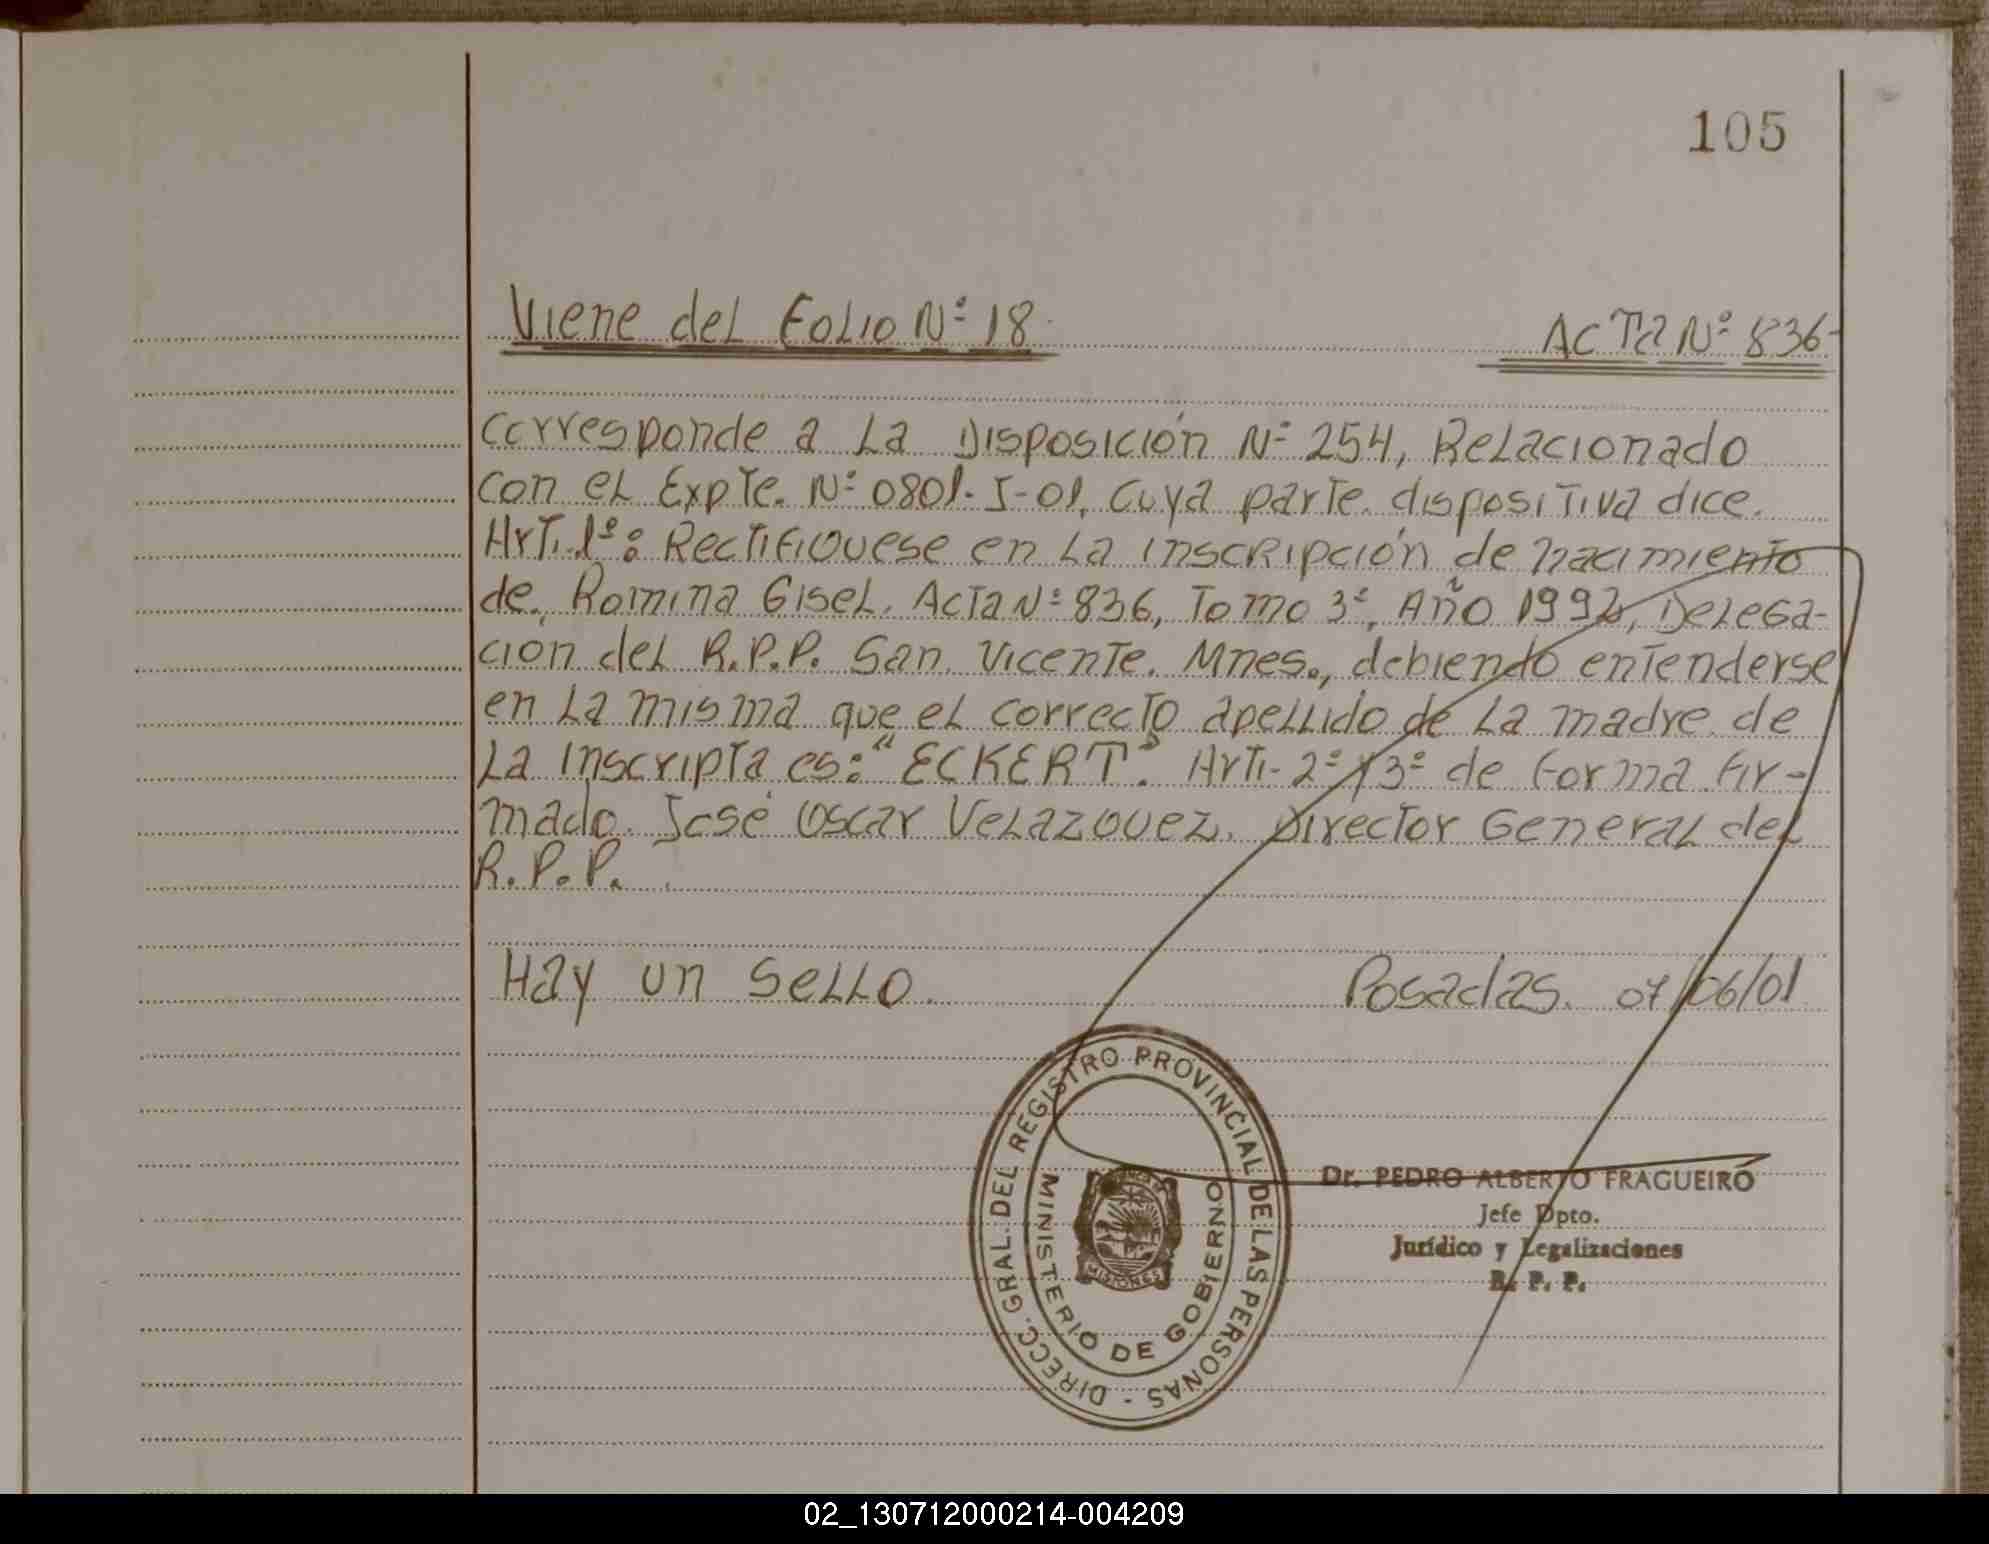 105
Viene del Folio Nº 18.
Acta Nº 836-
Corresponde a La Disposición Nº 254, Relacionado
con el Expte. Nº 0801-I-01, Cuya parte dispositiva dice.
Art. 1º: Rectifiquese en la inscripción de nacimiento
de, Romina Gisel. Acta Nº 836, Tomo 3º, Año 1992, Delega-
ción del R.P.P. San Vicente. Mnes., debiendo entenderse
en la misma que el correcto apellido de la madre de
la inscripta es: "ECKERT". Arti- 2º y 3º de forma fir-
mado. José Oscar Velazquez. Director General del
R.P.P.
Hay un Sello.
Posadas. 07/06/01
DIRECC. GRAL. DEL REGISTRO PROVINCIAL DE LAS PERSONAS -
MINISTERIO DE GOBIERNO
MISIONES
Dr. PEDRO ALBERTO FRAGUEIRO
Jefe Dpto.
Jurídico y Legalizaciones
R. P. P.
02_130712000214-004209